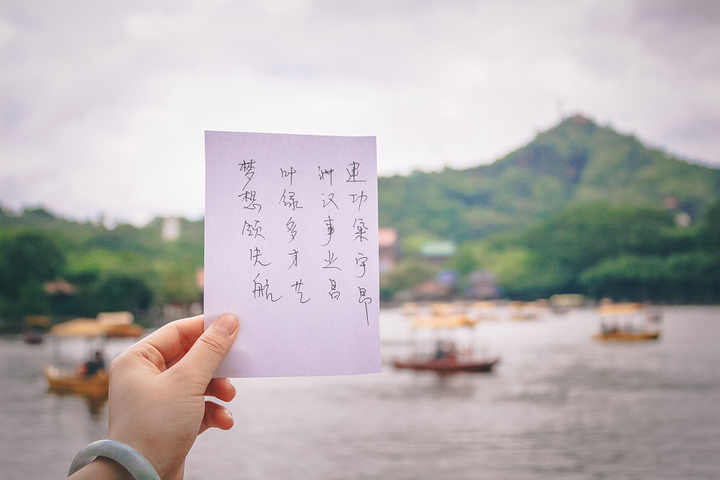 建功宇昂
洲汉事业昌
叶绿多才艺
梦想领航